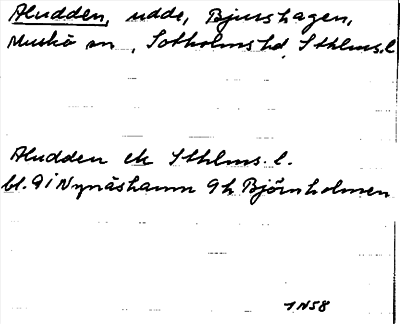 Aludden, udde, Bjurshagen,
Muskö sn, Sotholms hd, Sthlms. l
Aludden ek Sthlms. l.
bl. 9 i Nynäshamn 9h Björnholmen
1N58